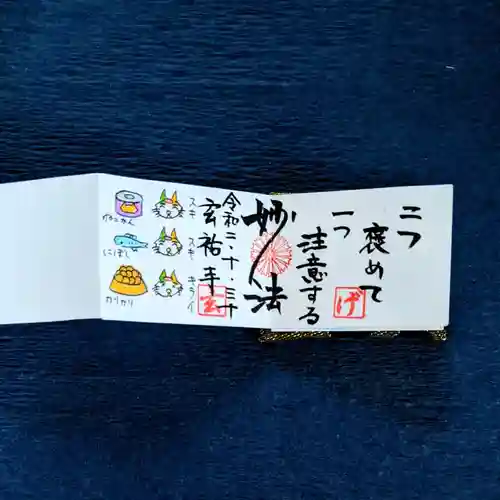 二つ
褒めて
一つ
注意する
げ
妙法
令和二・十・三十
玄祐手
玄
スキ
スキ
キライ
にぼし
カリカリ